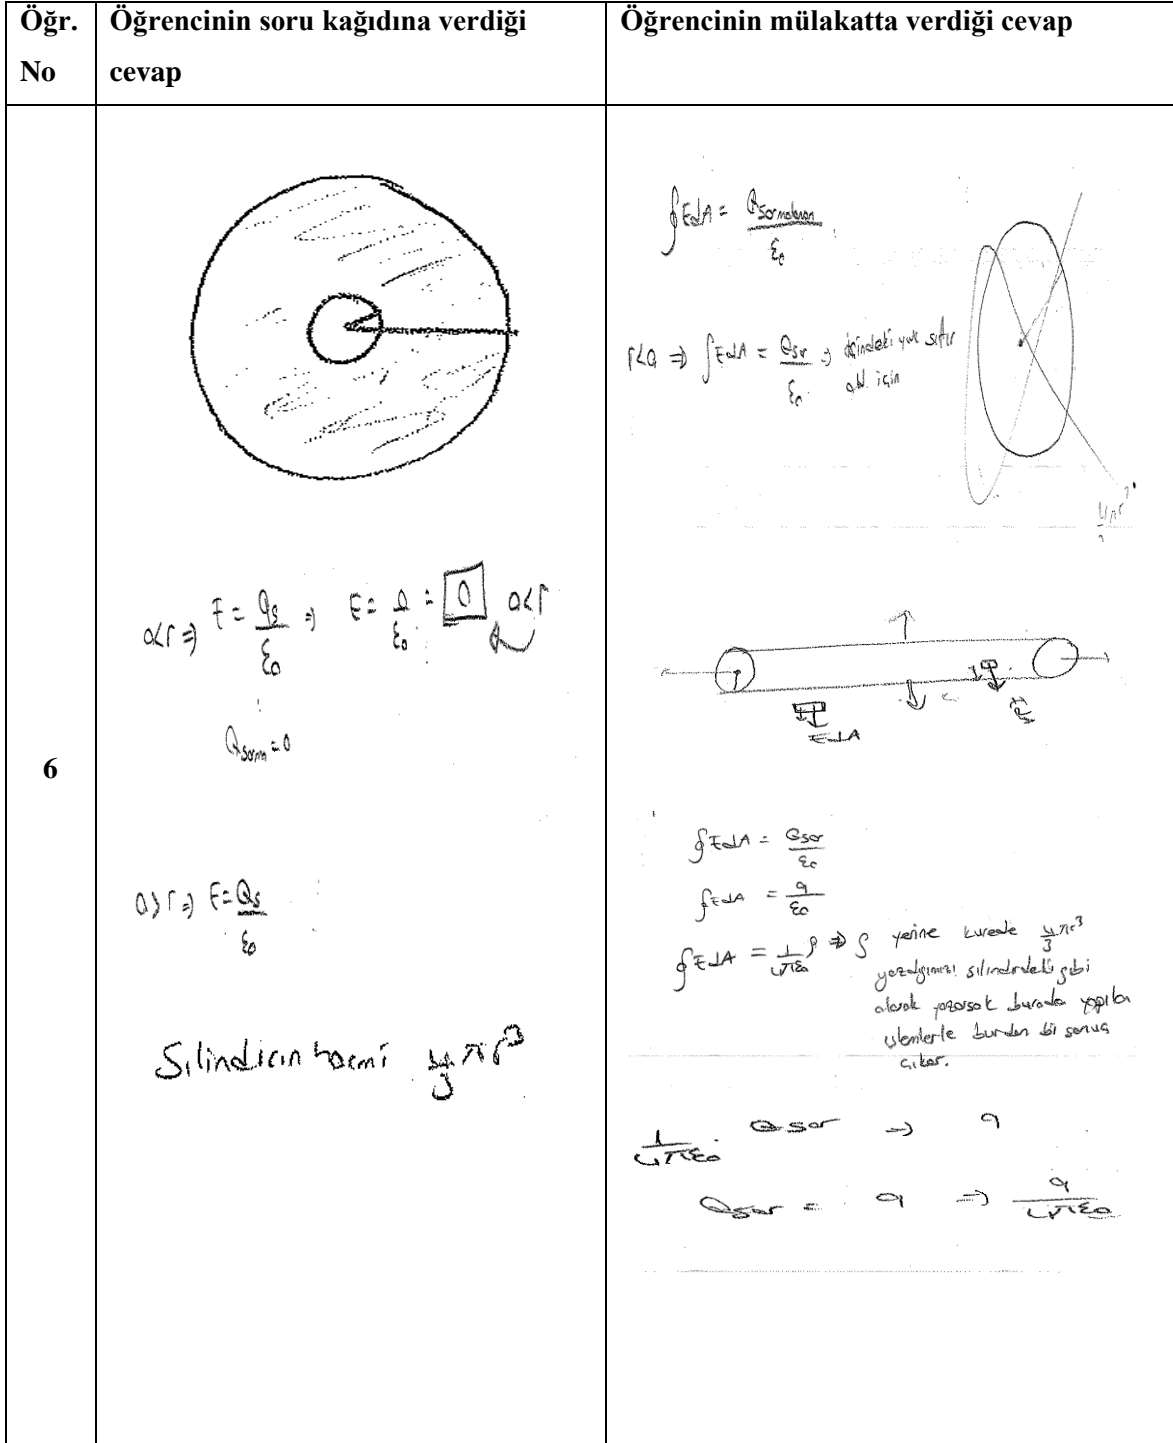 Öğr. No
Öğrencinin soru kağıdına verdiği cevap
Öğrencinin mülakatta verdiği cevap
6
a<r ⇒ E = Qs/ε₀ ⇒ E = 0/ε₀ = 0 a<r
Qsarım = 0
a>r ⇒ E = Qs/ε₀
Silindirin hacmi 4/3 πr³
∮EdA = Qsarmalanan/ε₀
r<a ⇒ ∫EdA = Qsar/ε₀ ⇒ içindeki yük sıfır
old. için
EdA
∮EdA = Qsar/ε₀
∮EdA = q/ε₀
∮EdA = 1/4πε₀ ρ ⇒ ρ yerine kürede 4/3 πr³
yazdığımızı silindirdeki gibi
alarak yazarsak burada yapılan
işlemlerle burdan bir sonuç
çıkar.
1/4πε₀ · Qsar ⇒ q
Qsar = q ⇒ q/4πε₀